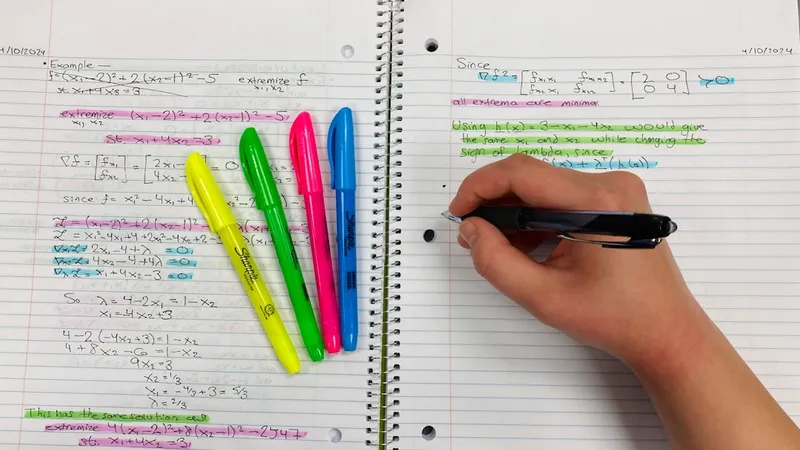 4/10/2024
• Example —
f=(x₁-2)²+2(x₂-1)²-5 extremize f
x₁, x₂
st. x₁+4x₂=3
extremize (x₁-2)²+2(x₂-1)²-5
x₁, x₂
st. x₁+4x₂=3
∇f = [fx₁ fx₂] = [2x₁- 4x₂-] = 0
since f= x₁²-4x₁+4
ℒ = (x₁-2)²+2(x₂-1)²
ℒ = x₁²-4x₁+4+2x₂²-4x₂+2-
∇x₁ℒ= 2x₁-4+λ =0
∇x₂ℒ= 4x₂-4+4λ =0
∇λℒ= x₁+4x₂-3 =0
So λ=4-2x₁=1-x₂
x₁=-4x₂+3
4-2(-4x₂+3)=1-x₂
4+8x₂-6=1-x₂
9x₂=3
x₂=1/3
x₁=-4/3+3=5/3
λ=2/3
This has the same solution as
extremize 4(x₁-2)²+8(x₂-1)²-2547
st. x₁+4x₂=3
Sharpie
Sharpie
4/10/2024
Since
∇f²= [fx₁x₁ fx₁x₂ fx₂x₁ fx₂x₂] = [2 0 0 4] >0
all extrema are minima
Using h(x)=3-x₁-4x₂ would give
the same x₁ and x₂ while changing the
sign of lambda, since
f(x)+λᵀ(h(x))